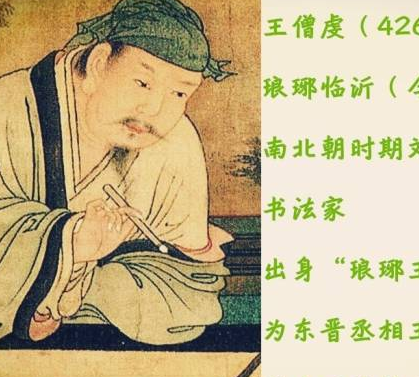 王僧虔（426
琅琊临沂（
南北朝时期
书法家
出身“琅琊王
为东晋丞相王